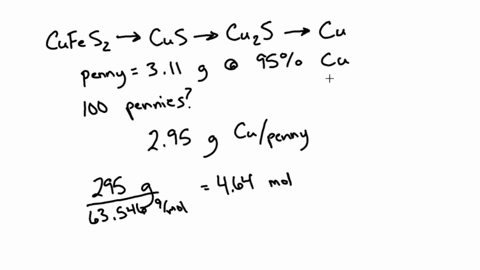 CuFeS₂ → CuS → Cu₂S → Cu
penny = 3.11 g @ 95% Cu
100 pennies?
2.95 g Cu/penny
295 g / 63.546 g/mol = 4.64 mol